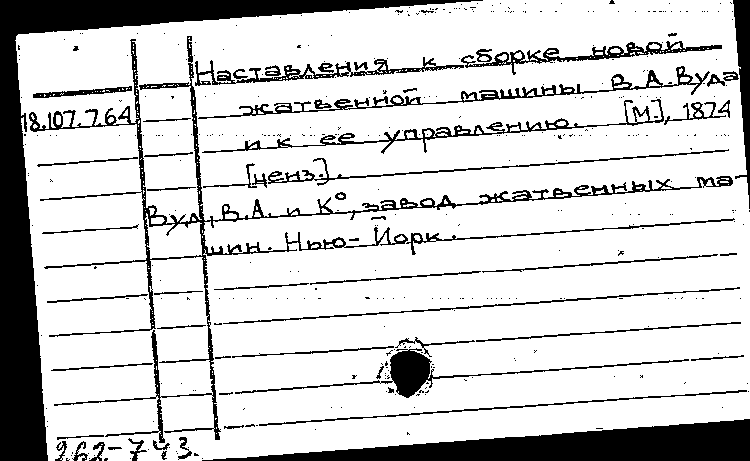 Наставления к сборке новой
18.107.764 жатвенной машины В.А.Вуда
и к ее управлению. [М.], 1874
[ценз.].
Вуд, В.А. и К°, завод жатвенных ма-
шин. Нью-Йорк.
262-743.